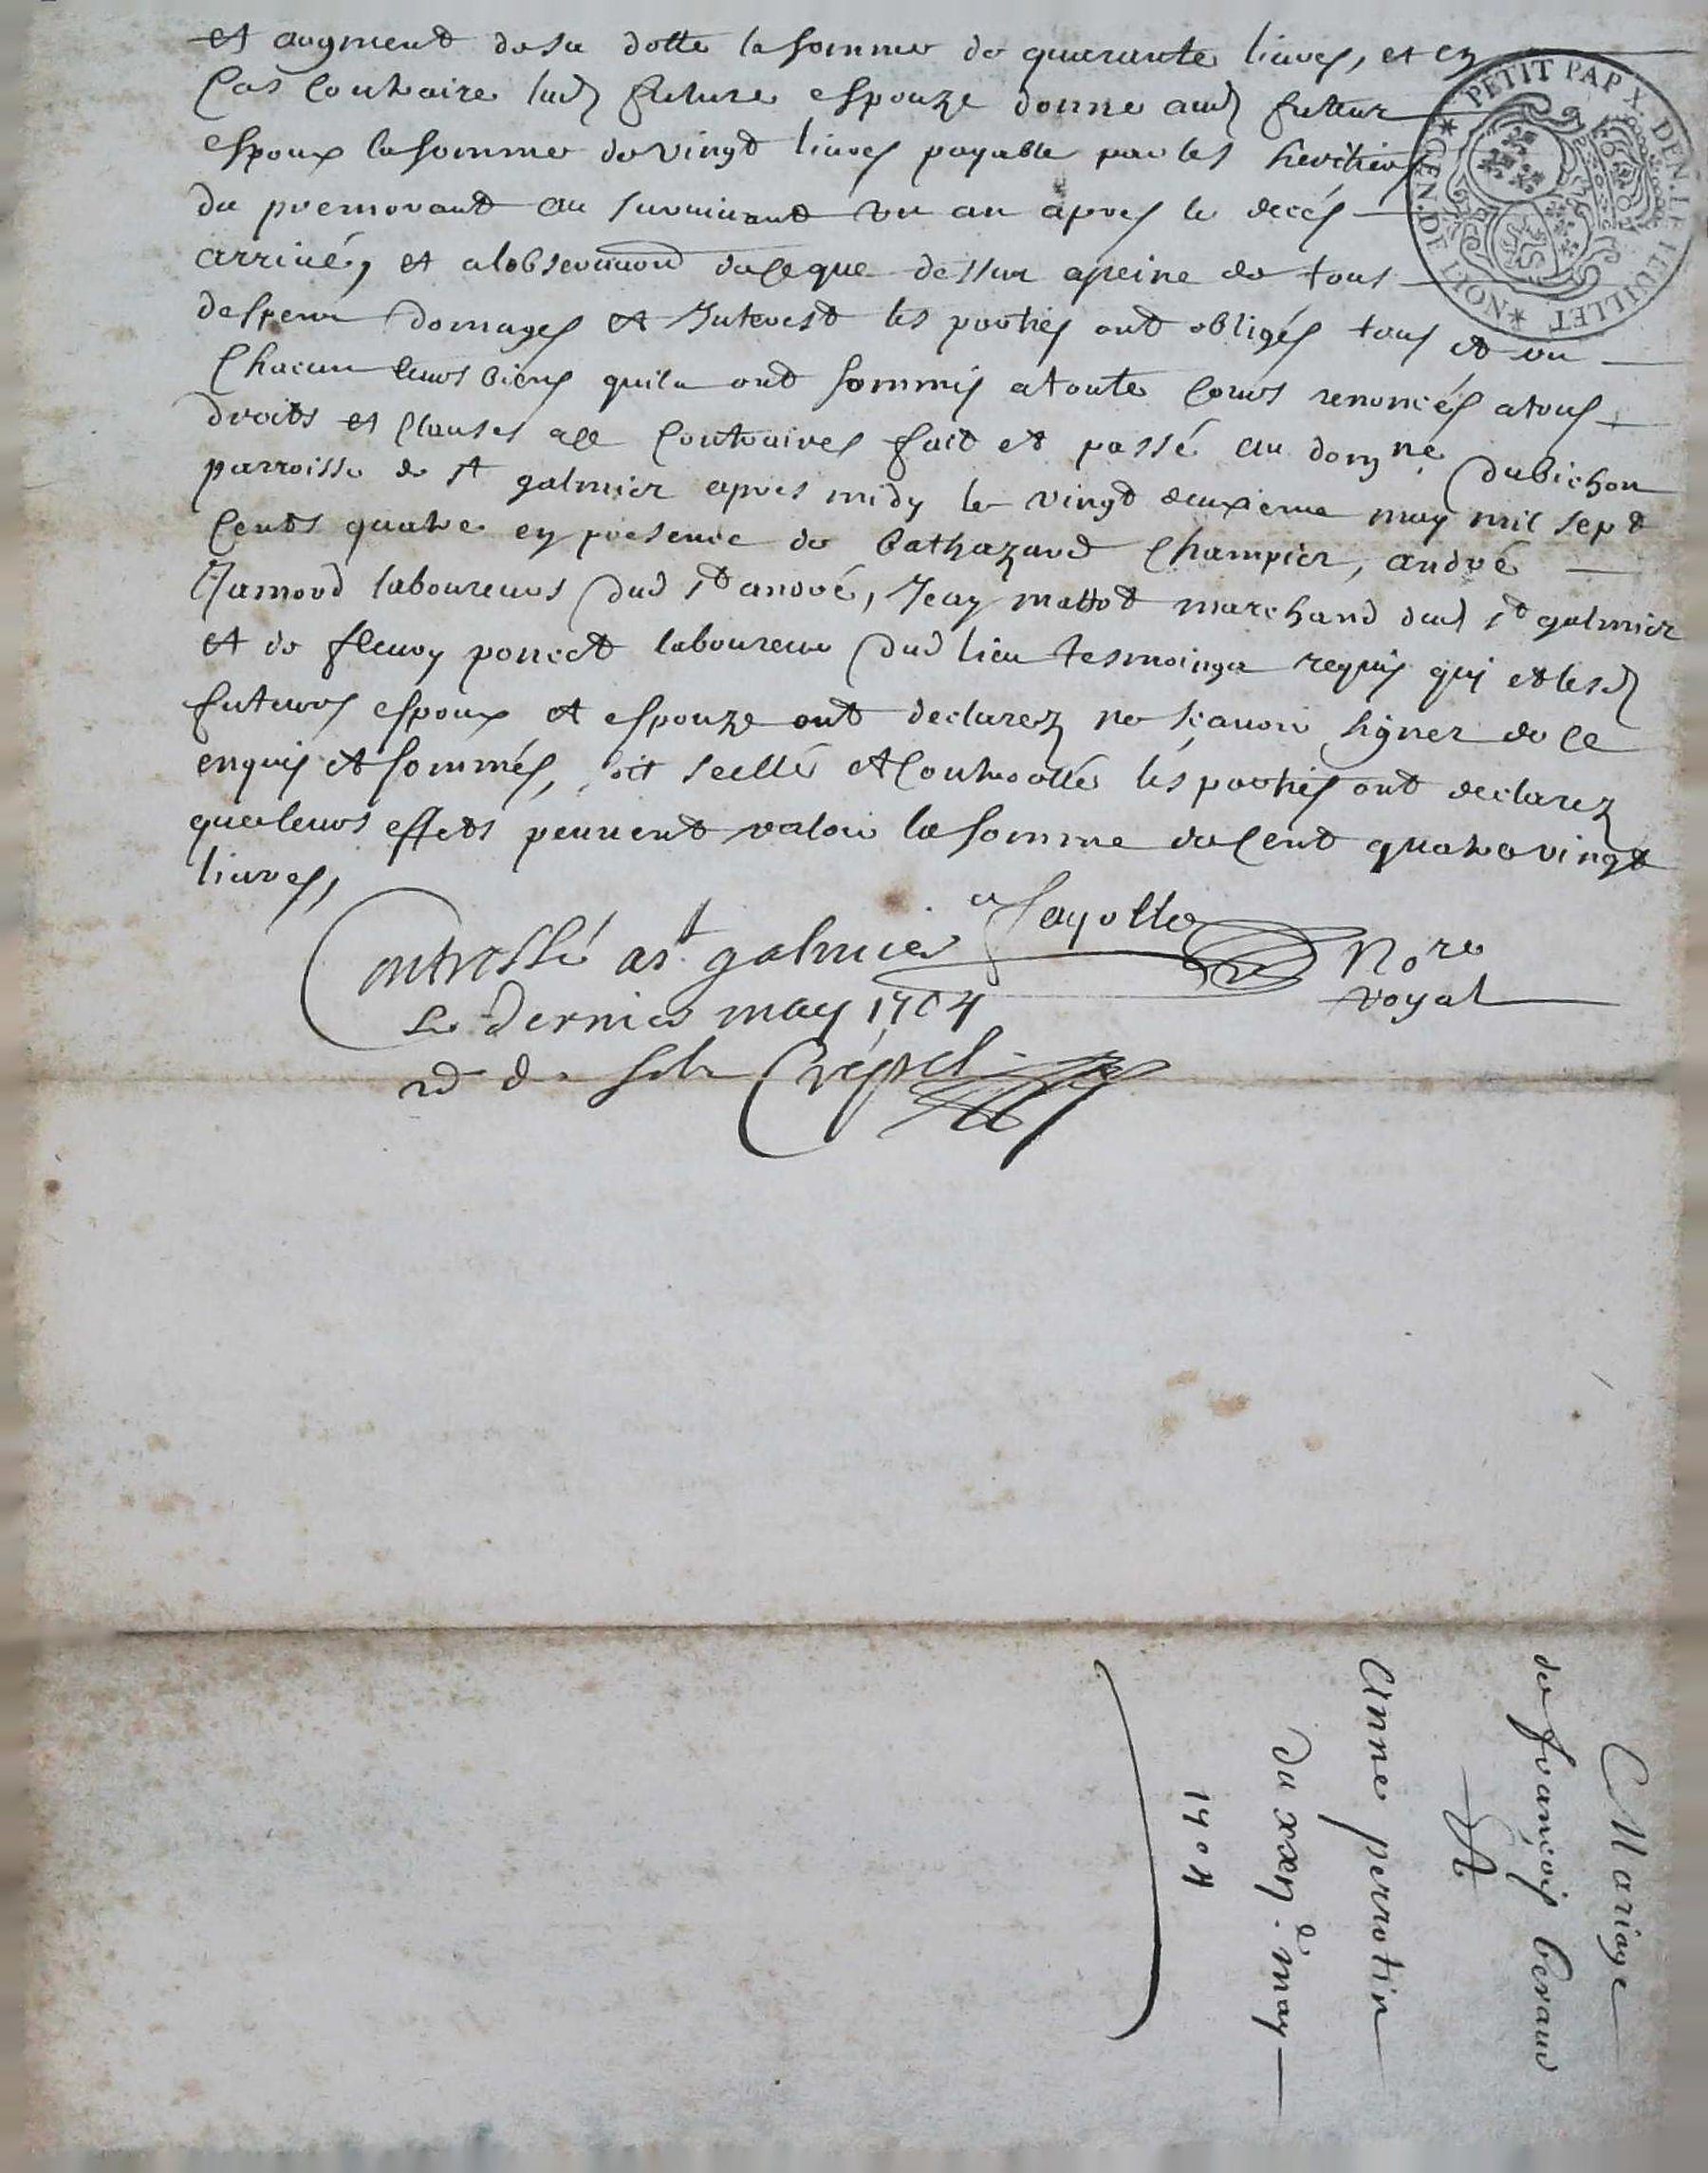 et augment de sa dotte la somme de quarante livres, et en
cas contraire lad future espouze donne aud futeur
espoux la somme de vingt livres payable par les heritiers
du premourant au survivant un an apres le decés
arrivé, et alobservation dece que dessur apeine de tous
despens domages et Interest les parties ont obligés tous et un
chacun leurs biens quils ont sommis atoute cours renoncés atous
droits et clauses ace contraires fait et passé au domne dubichon
parroisse de st galmier apres midy le vingt deuxieme may mil sept
cents quatre en presence de bathazard champier, andré
Jamond laboureurs dud st andré, Jean mattot marchand dud st galmier
et de fleury ponect laboureur dud lieu tesmoings requis qui et lesd
futeurs espoux et espouze ont declarez ne sçavoir signer de ce
enquis et sommés, soit scellé et controollé les parties ont declarez
queleurs effets peuvent valoir la somme de cent quatre vingt
livres,
fayolle Nore
royal
Controllé a st galmier
Le dernier may 1704
Crépet
PETIT PAP X. DEN. LE FEUILLET * GEN. DE LION *
Mariage
de françois beraud
et
anne perrotin
du xxii e may
1704